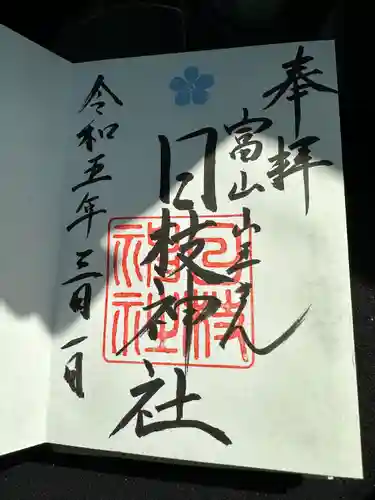 奉拝
富山山王さん
日枝神社
令和五年三月一日
日枝神社